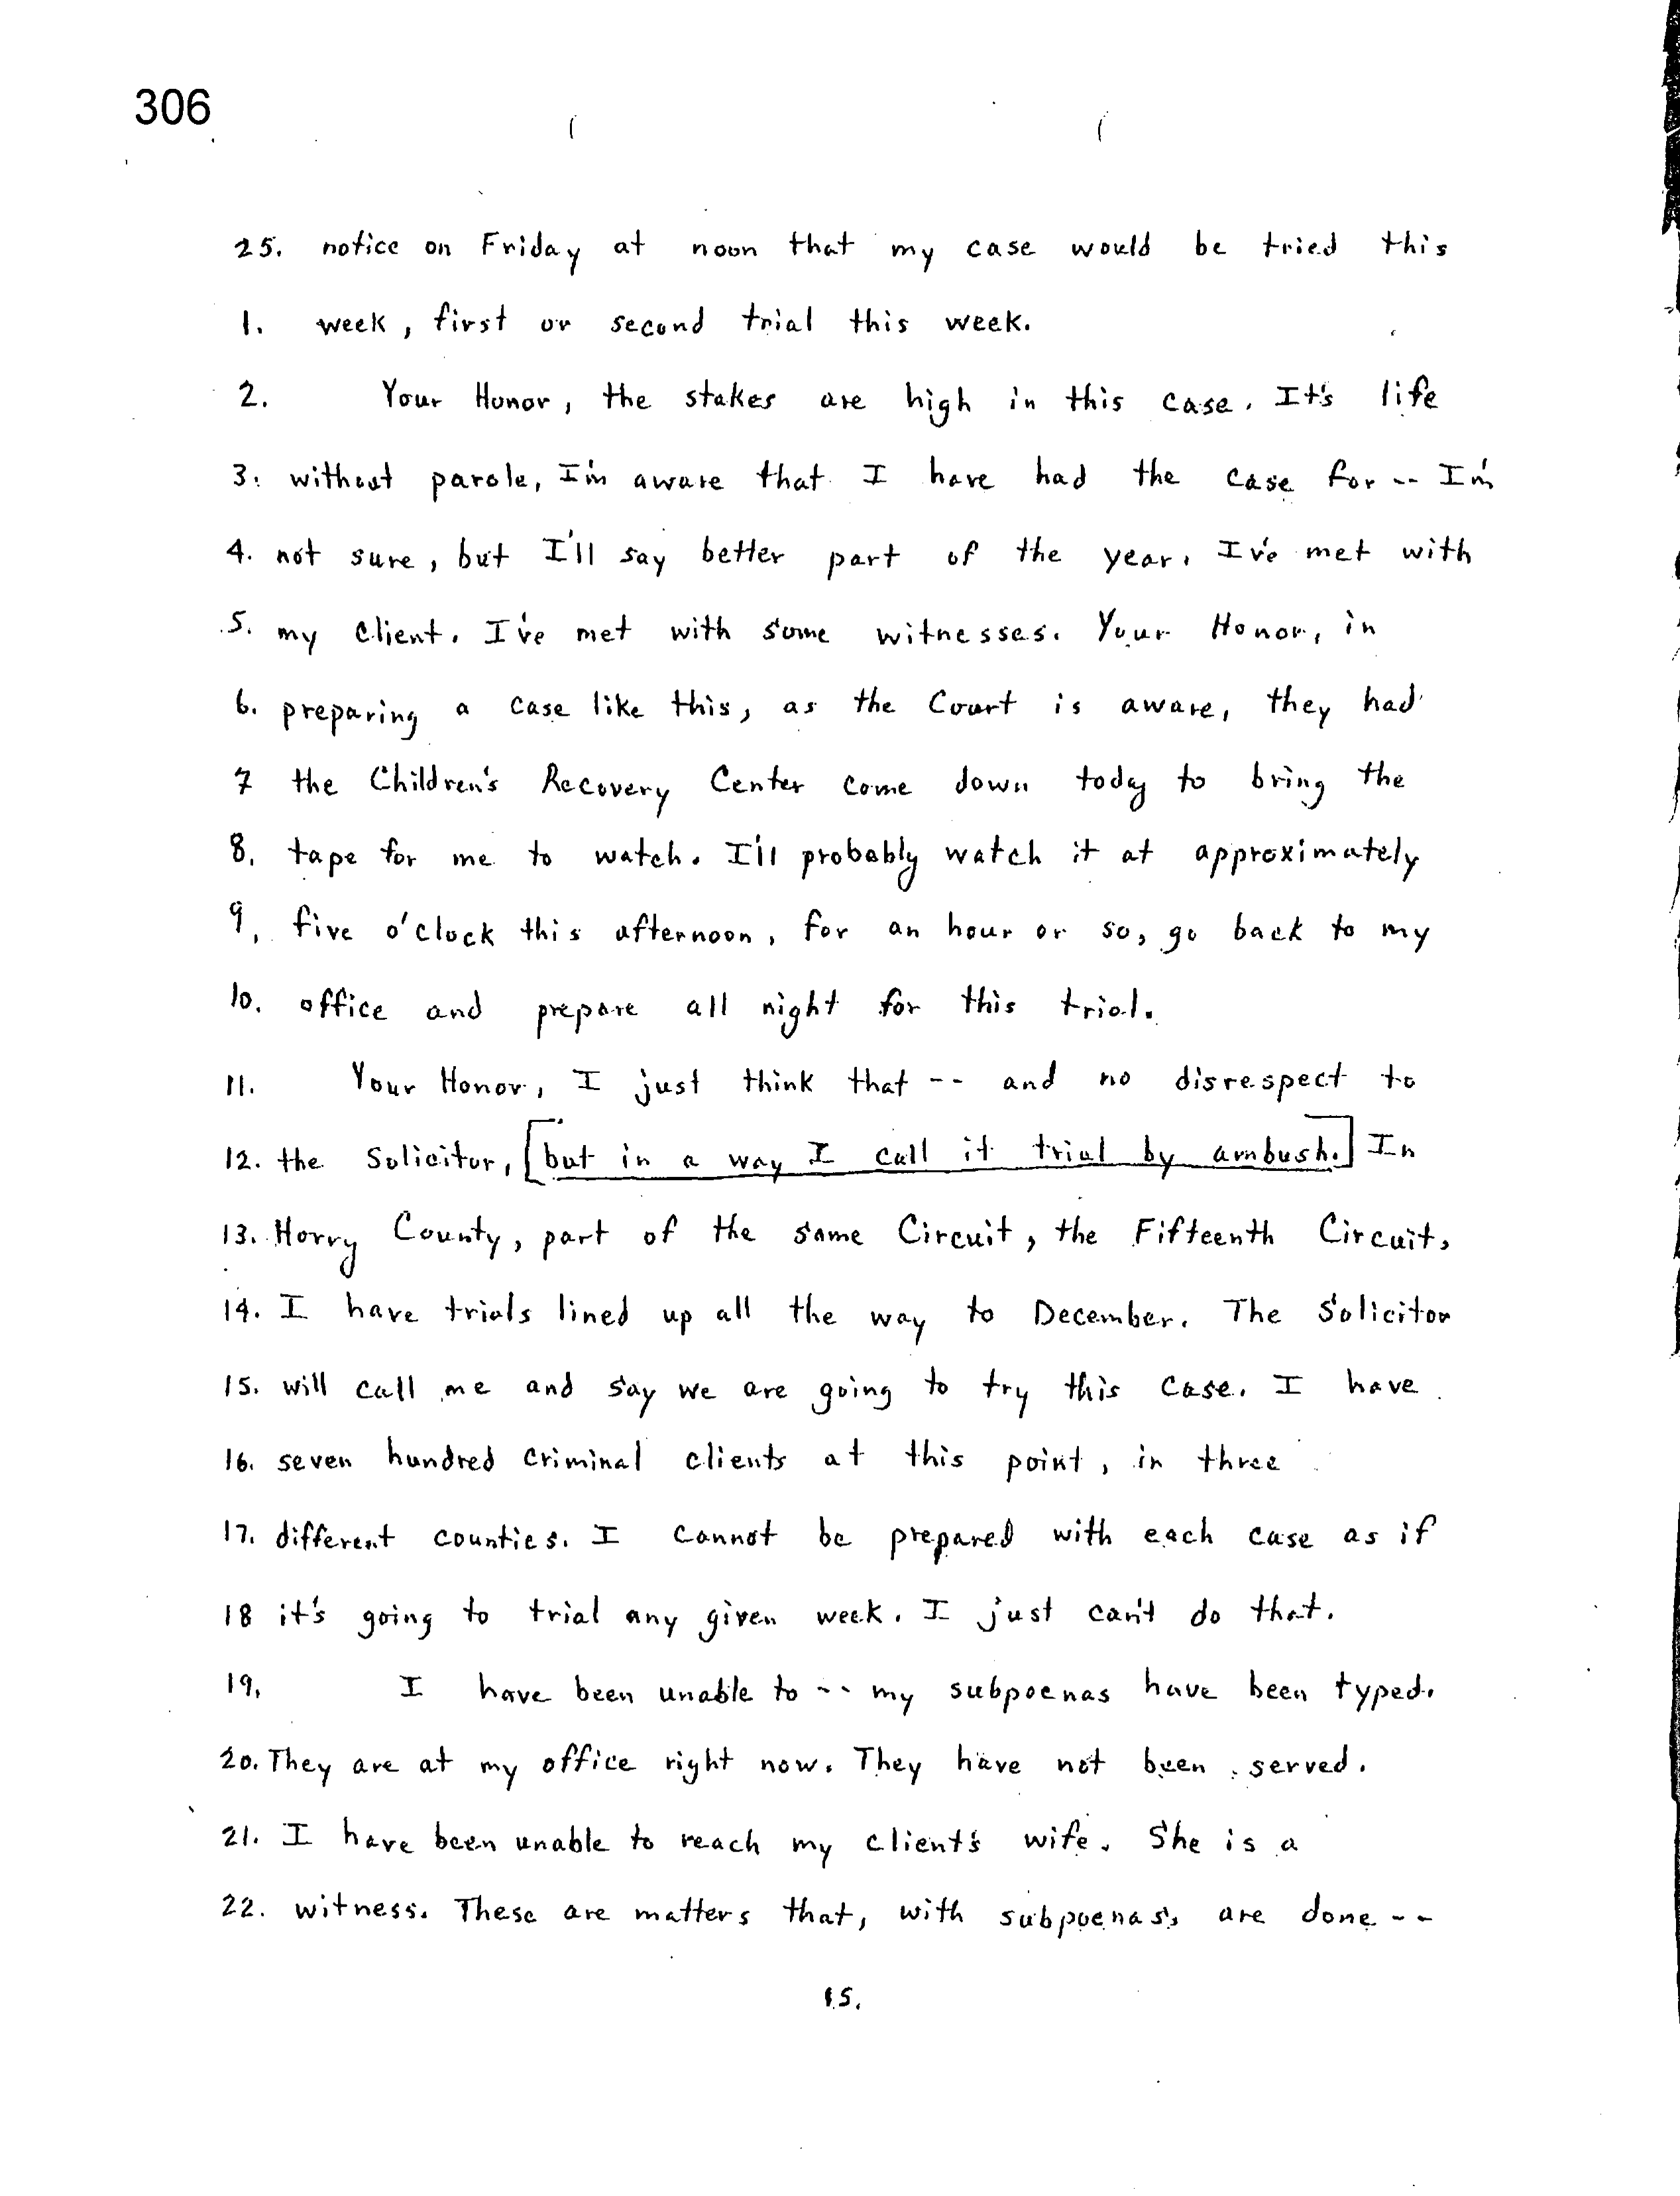 306
25. notice on Friday at noon that my case would be tried this
1. week, first or second trial this week.
2. Your Honor, the stakes are high in this case. It's life
3. without parole, I'm aware that I have had the case for -- I'm
4. not sure, but I'll say better part of the year. I've met with
5. my client. I've met with some witnesses. Your Honor, in
6. preparing a case like this, as the Court is aware, they had
7 the Children's Recovery Center come down today to bring the
8. tape for me to watch. I'll probably watch it at approximately
9. five o'clock this afternoon, for an hour or so, go back to my
10. office and prepare all night for this trial.
11. Your Honor, I just think that -- and no disrespect to
12. the Solicitor, [but in a way I call it trial by ambush.] In
13. Horry County, part of the same Circuit, the Fifteenth Circuit,
14. I have trials lined up all the way to December. The Solicitor
15. will call me and say we are going to try this case. I have
16. seven hundred criminal clients at this point, in three
17. different counties. I cannot be prepared with each case as if
18 it's going to trial any given week. I just can't do that.
19. I have been unable to -- my subpoenas have been typed.
20. They are at my office right now. They have not been served.
21. I have been unable to reach my client's wife. She is a
22. witness. These are matters that, with subpoenas, are done --
15.